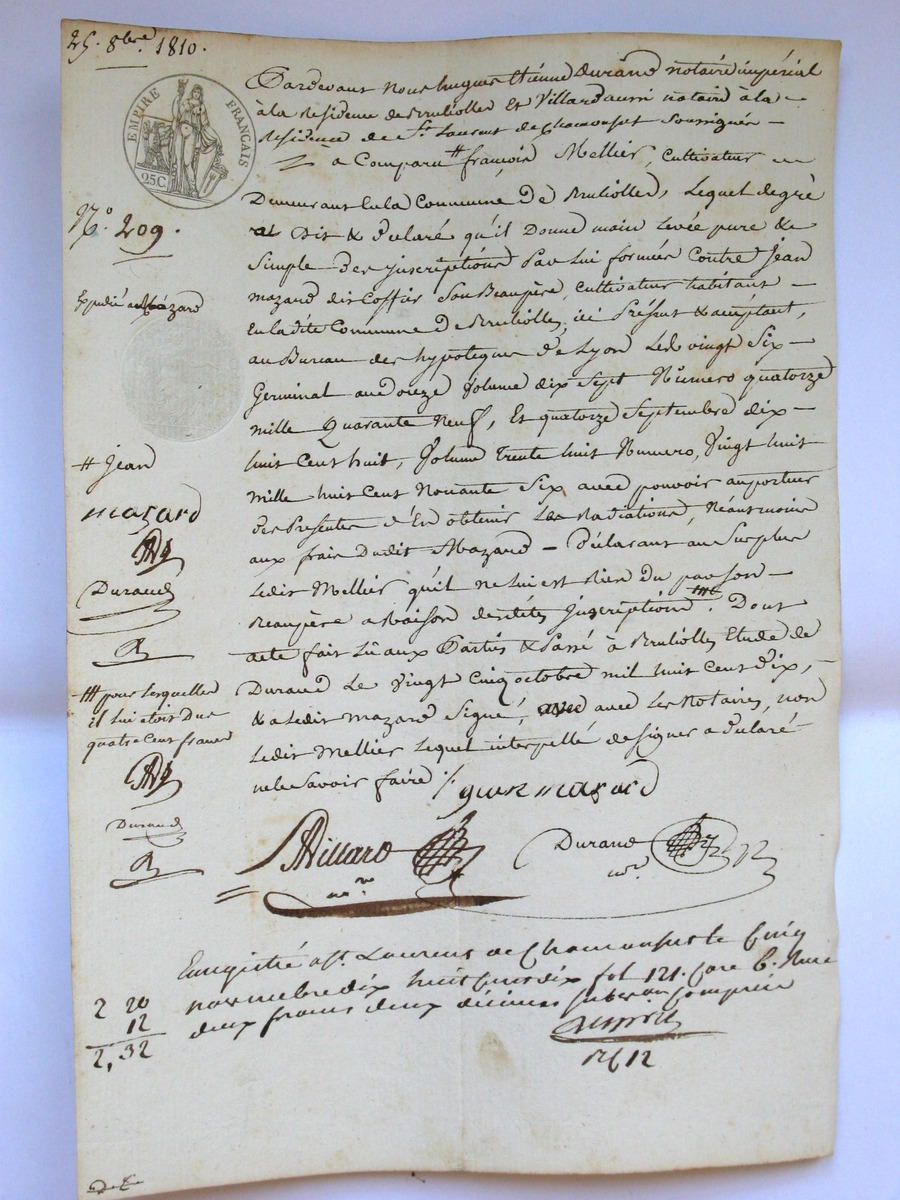 25. 8bre 1810.
EMPIRE FRANÇAIS
25C.
No. 209.
Expédié a Mazard
Pardevant Nous hugues Etienne Durand notaire impérial
à la Residence de Brullolles Et Villard aussi notaire à la
Residence de St. Laurent de Chamousset Soussignés
a Comparu # françois Mellier, cultivateur
Demeurant En la Commune De Brullolles, Lequel de gré
a Dit & Declaré qu'il Donne main Levée pure &
Simple des inscriptions Par Lui formées Contre Jean
Mazard dit Coffier Son Beaupère, cultivateur habitant
En la dite Commune De Brullolles, ici Présent & acceptant,
au Bureau des hypoteques De Lyon Les vingt Six
Germinal an onze Volume dix Sept Numero quatorze
mille Quarante Neuf, Et quatorze Septembre dix
huit Cent huit, Volume Trente huit Numero, Vingt huit
mille huit Cent Nonante Six avec pouvoir au porteur
des Presentes d'En obtenir Les Radiations, Néantmoins
aux frais Dudit Mazard – Déclarant au Surplus
Ledit Mellier qu'il ne lui est Rien Du par Son
Beaupère a Raison desdites Inscriptions ###. Dont
acte fait Lû aux Parties & Passé à Brullolles Etude de
Durand Le Vingt Cinq octobre mil huit Cent Dix,
& a Ledit Mazard Signé, avec Les Notaires, non
Ledit Mellier Lequel interpellé de Signer a Déclaré
ne le Savoir faire
# Jean
mazard
Durand
### pour lesquelles
il lui étoit Du
quatre Cent francs
Durand
mazard
Villard
nre
Durand
nore.
Enregistré a St. Laurent de Chamousset le Cinq
novembre dix huit cent dix fol 121. case 6. Reçu
deux francs deux décimes subvon comprise
2 20
12
2,32